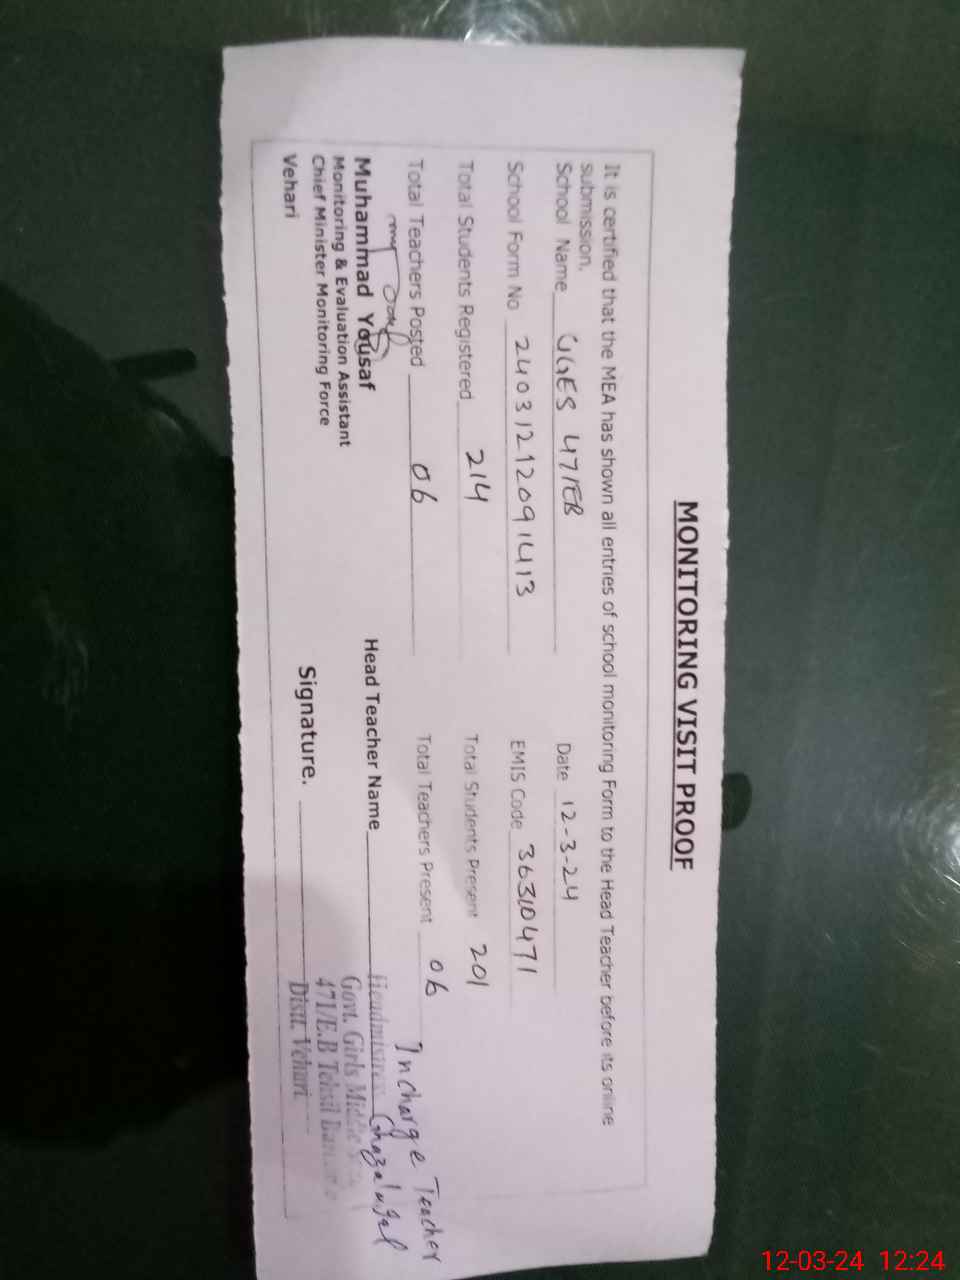 MONITORING VISIT PROOF
It is certified that the MEA has shown all entries of school monitoring Form to the Head Teacher before its online
submission.
School Name GGES 471EB Date 12-3-24
School Form No 24031212091413 EMIS Code 36310471
Total Students Registered 214 Total Students Present 201
Total Teachers Posted 06 Total Teachers Present 06
Incharge Teacher
Muhammad Yousaf
Monitoring & Evaluation Assistant
Chief Minister Monitoring Force
Vehari
Head Teacher Name
Signature.
Headmistress
Govt. Girls Middle
471/E.B Tehsil
Distt. Vehari
12-03-24 12:24